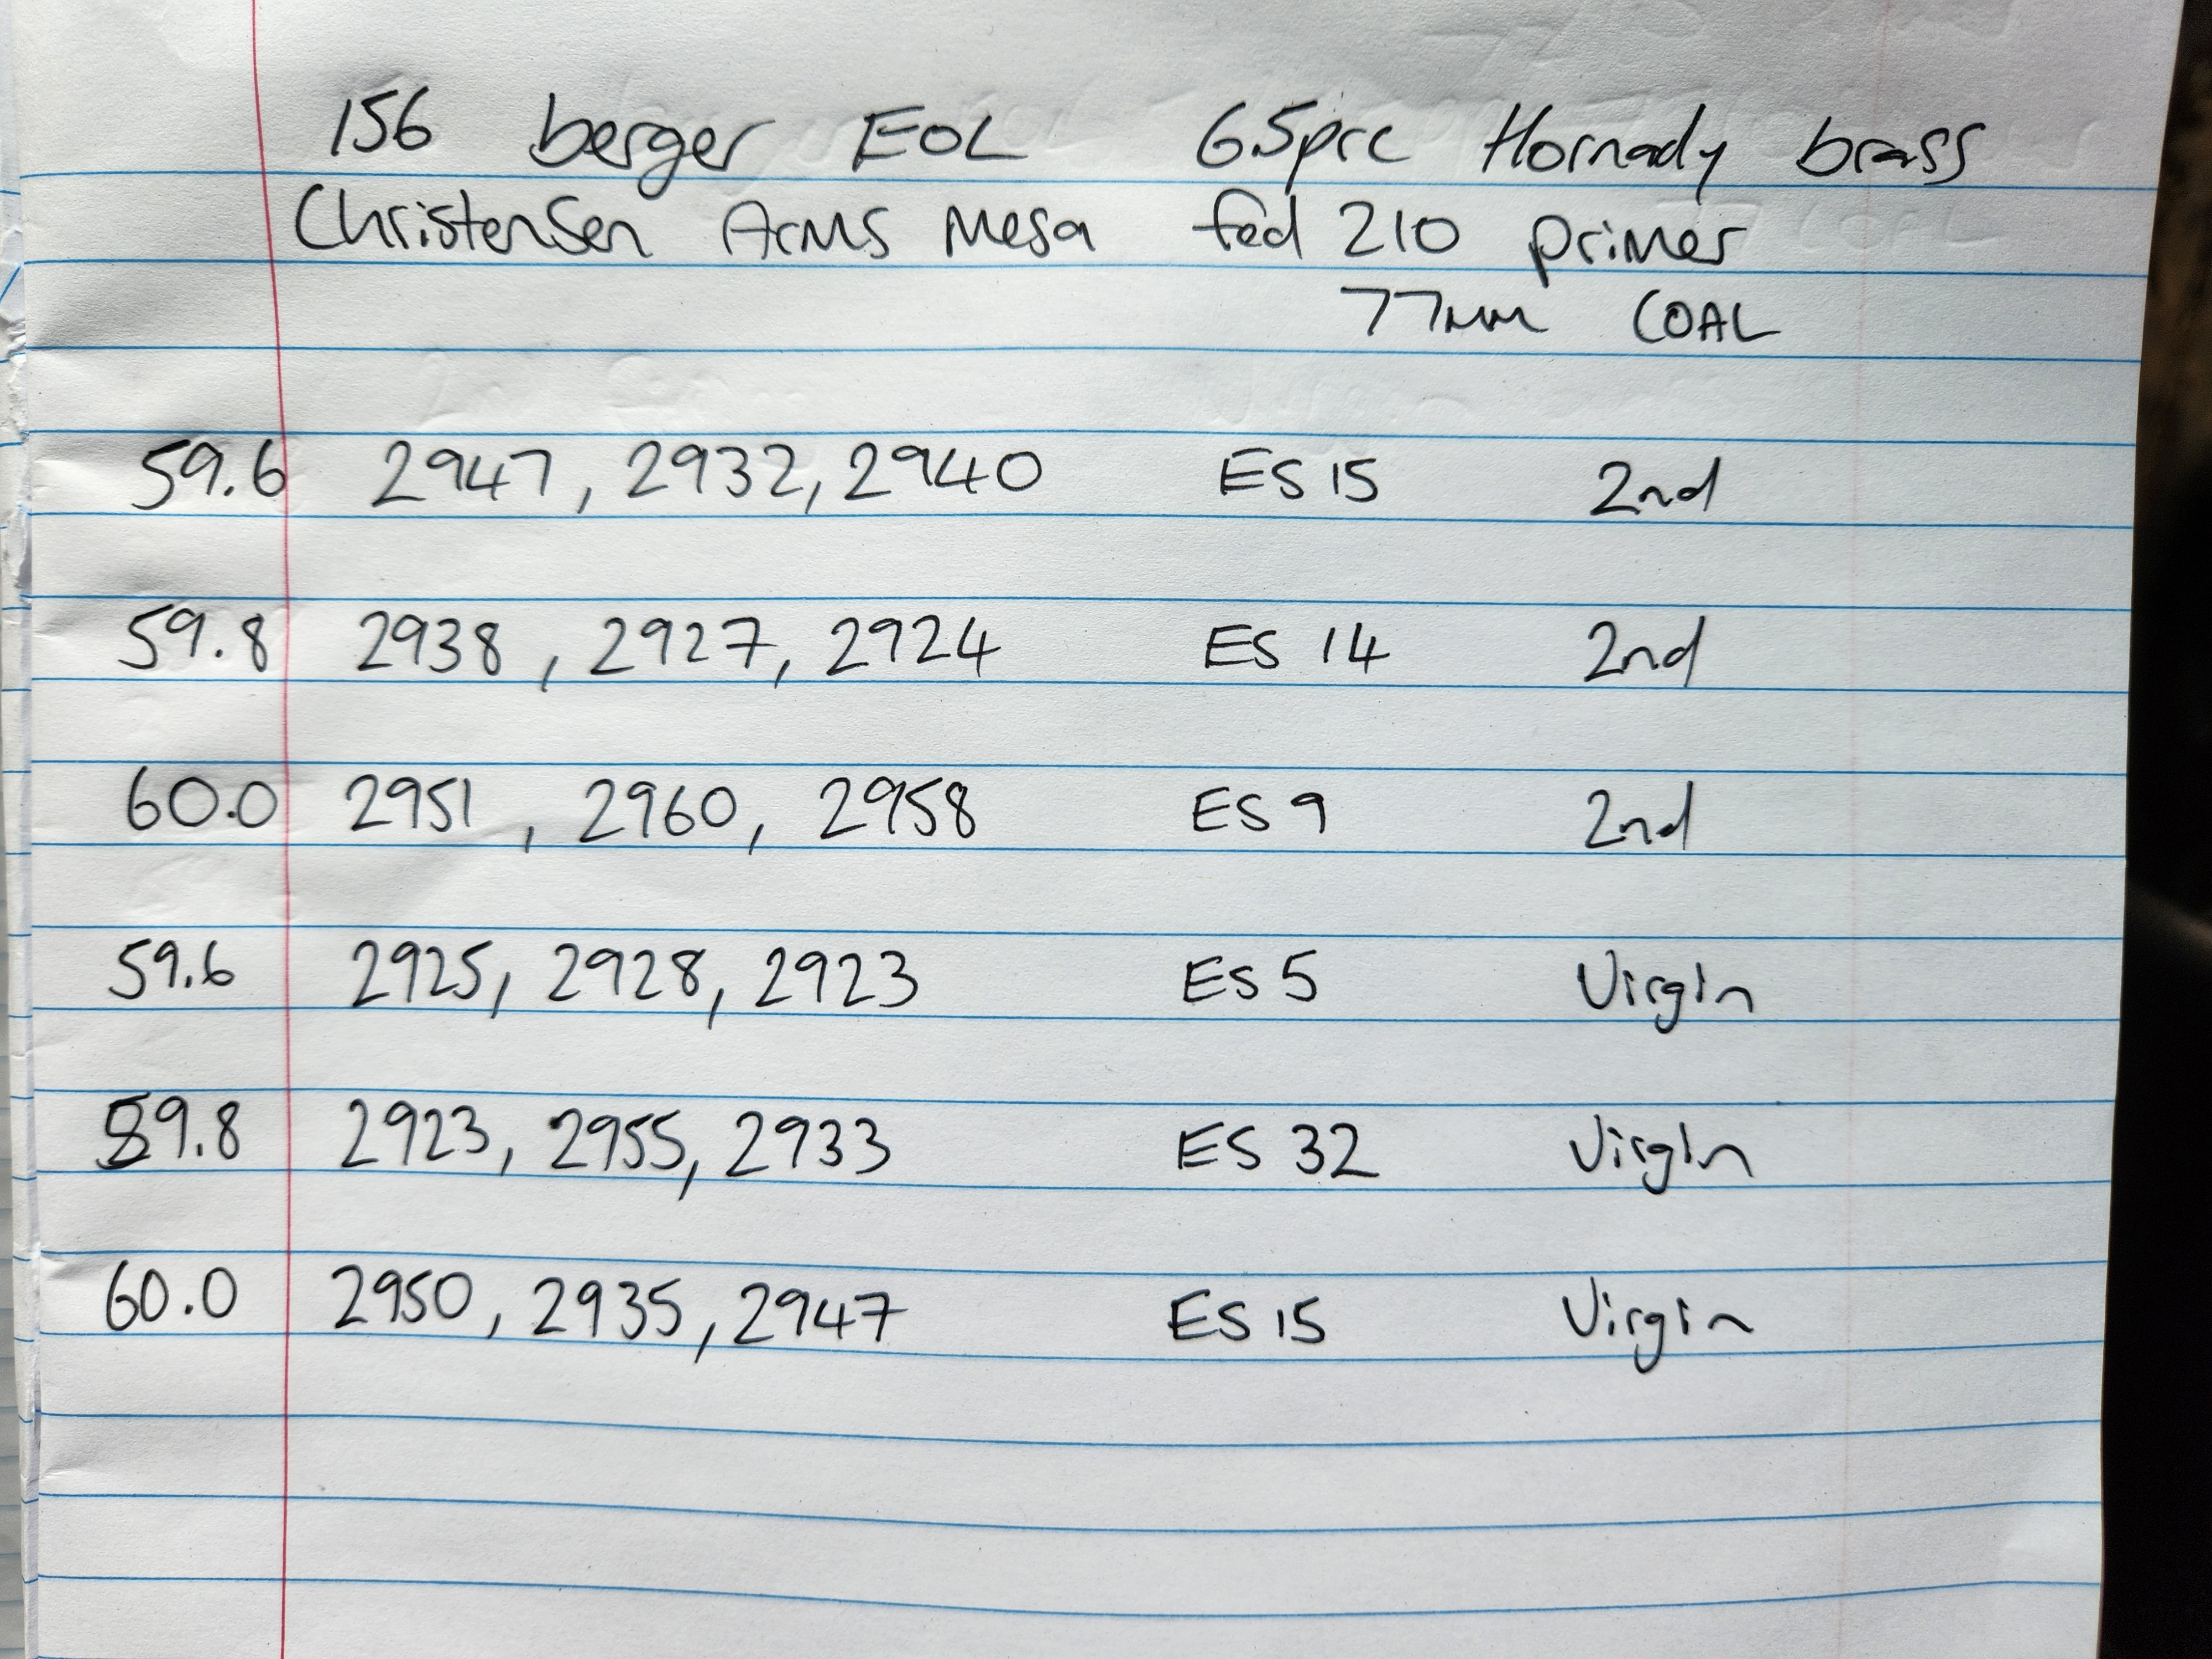 156 berger EOL 6.5prc Hornady brass
Christensen Arms Mesa fed 210 primer
77mm COAL
59.6 2947, 2932, 2940 ES 15 2nd
59.8 2938, 2927, 2924 ES 14 2nd
60.0 2951, 2960, 2958 ES 9 2nd
59.6 2925, 2928, 2923 ES 5 Virgin
59.8 2923, 2955, 2933 ES 32 Virgin
60.0 2950, 2935, 2947 ES 15 Virgin